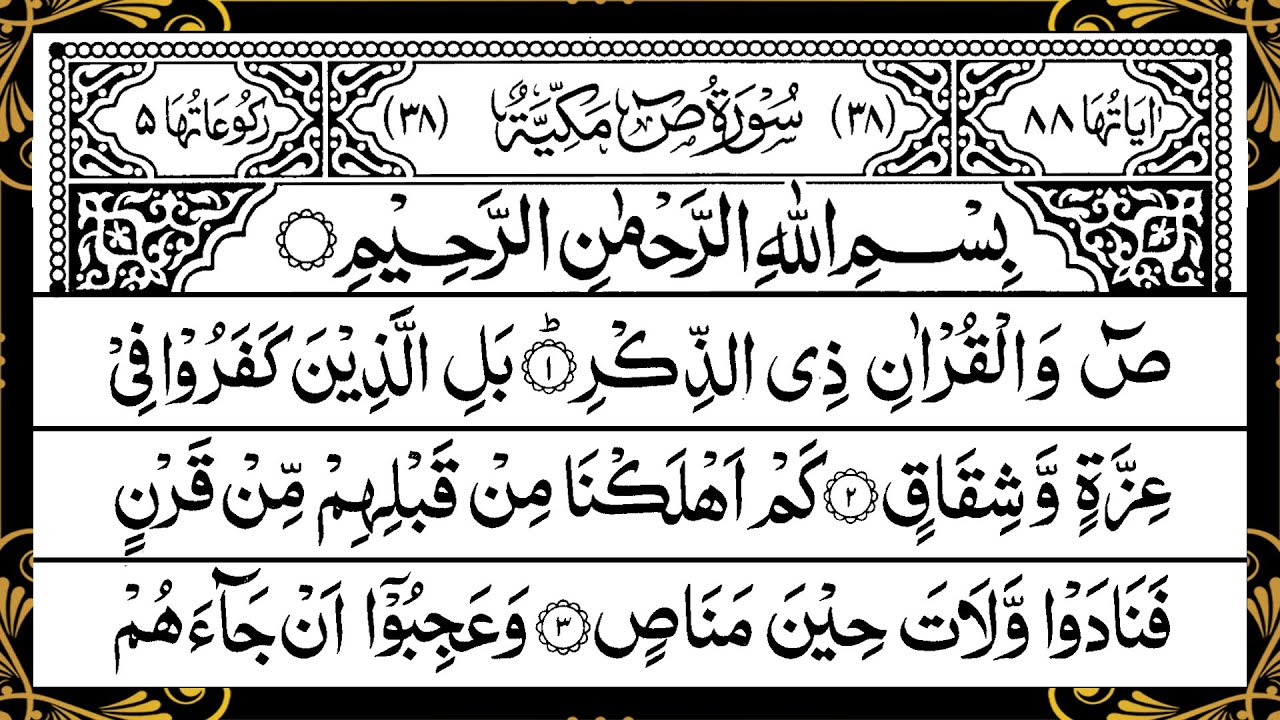 اٰيَاتُهَا ٨٨ (٣٨) سُوْرَةُ صٓ مَكِّيَّةٌ (٣٨) رُكُوْعَاتُهَا ۵
بِسْمِ اللّٰهِ الرَّحْمٰنِ الرَّحِيْمِ
صٓ وَالْقُرْاٰنِ ذِى الذِّكْرِؕ ١ بَلِ الَّذِيْنَ كَفَرُوْا فِىْ
عِزَّةٍ وَّشِقَاقٍ ٢ كَمْ اَهْلَكْنَا مِنْ قَبْلِهِمْ مِّنْ قَرْنٍ
فَنَادَوْا وَّلَاتَ حِيْنَ مَنَاصٍ ٣ وَعَجِبُوْۤا اَنْ جَآءَهُمْ